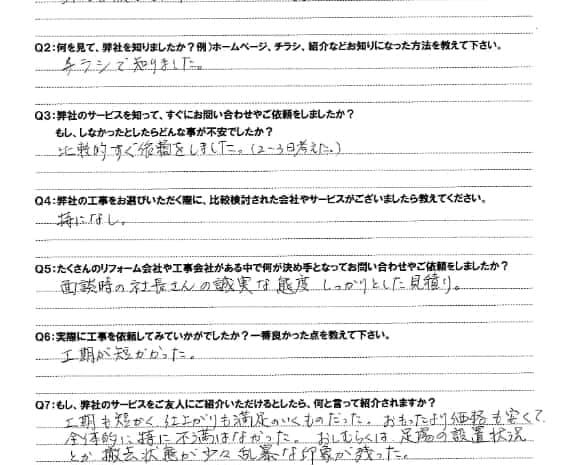 Q2:何を見て、弊社を知りましたか？例）ホームページ、チラシ、紹介などお知りになった方法を教えて下さい。
チラシで知りました。
Q3:弊社のサービスを知って、すぐにお問い合わせやご依頼をしましたか？
もし、しなかったとしたらどんな事が不安でしたか？
比較的すぐ依頼をしました。(2～3日考えた。)
Q4:弊社の工事をお選びいただく際に、比較検討された会社やサービスがございましたら教えてください。
特になし。
Q5:たくさんのリフォーム会社や工事会社がある中で何が決め手となってお問い合わせやご依頼をしましたか？
面談時の社長さんの誠実な態度 しっかりとした見積り。
Q6:実際に工事を依頼してみていかがでしたか？一番良かった点を教えて下さい。
工期が短かかった。
Q7:もし、弊社のサービスをご友人にご紹介いただけるとしたら、何と言って紹介されますか？
工期も短かく 仕上がりも満足のいくものだった。おもったより価格も安くて
全体的に特に不満はなかった。おしむらくは 足場の設置状況
とか 撤去状態が少々乱暴な印象が残った。